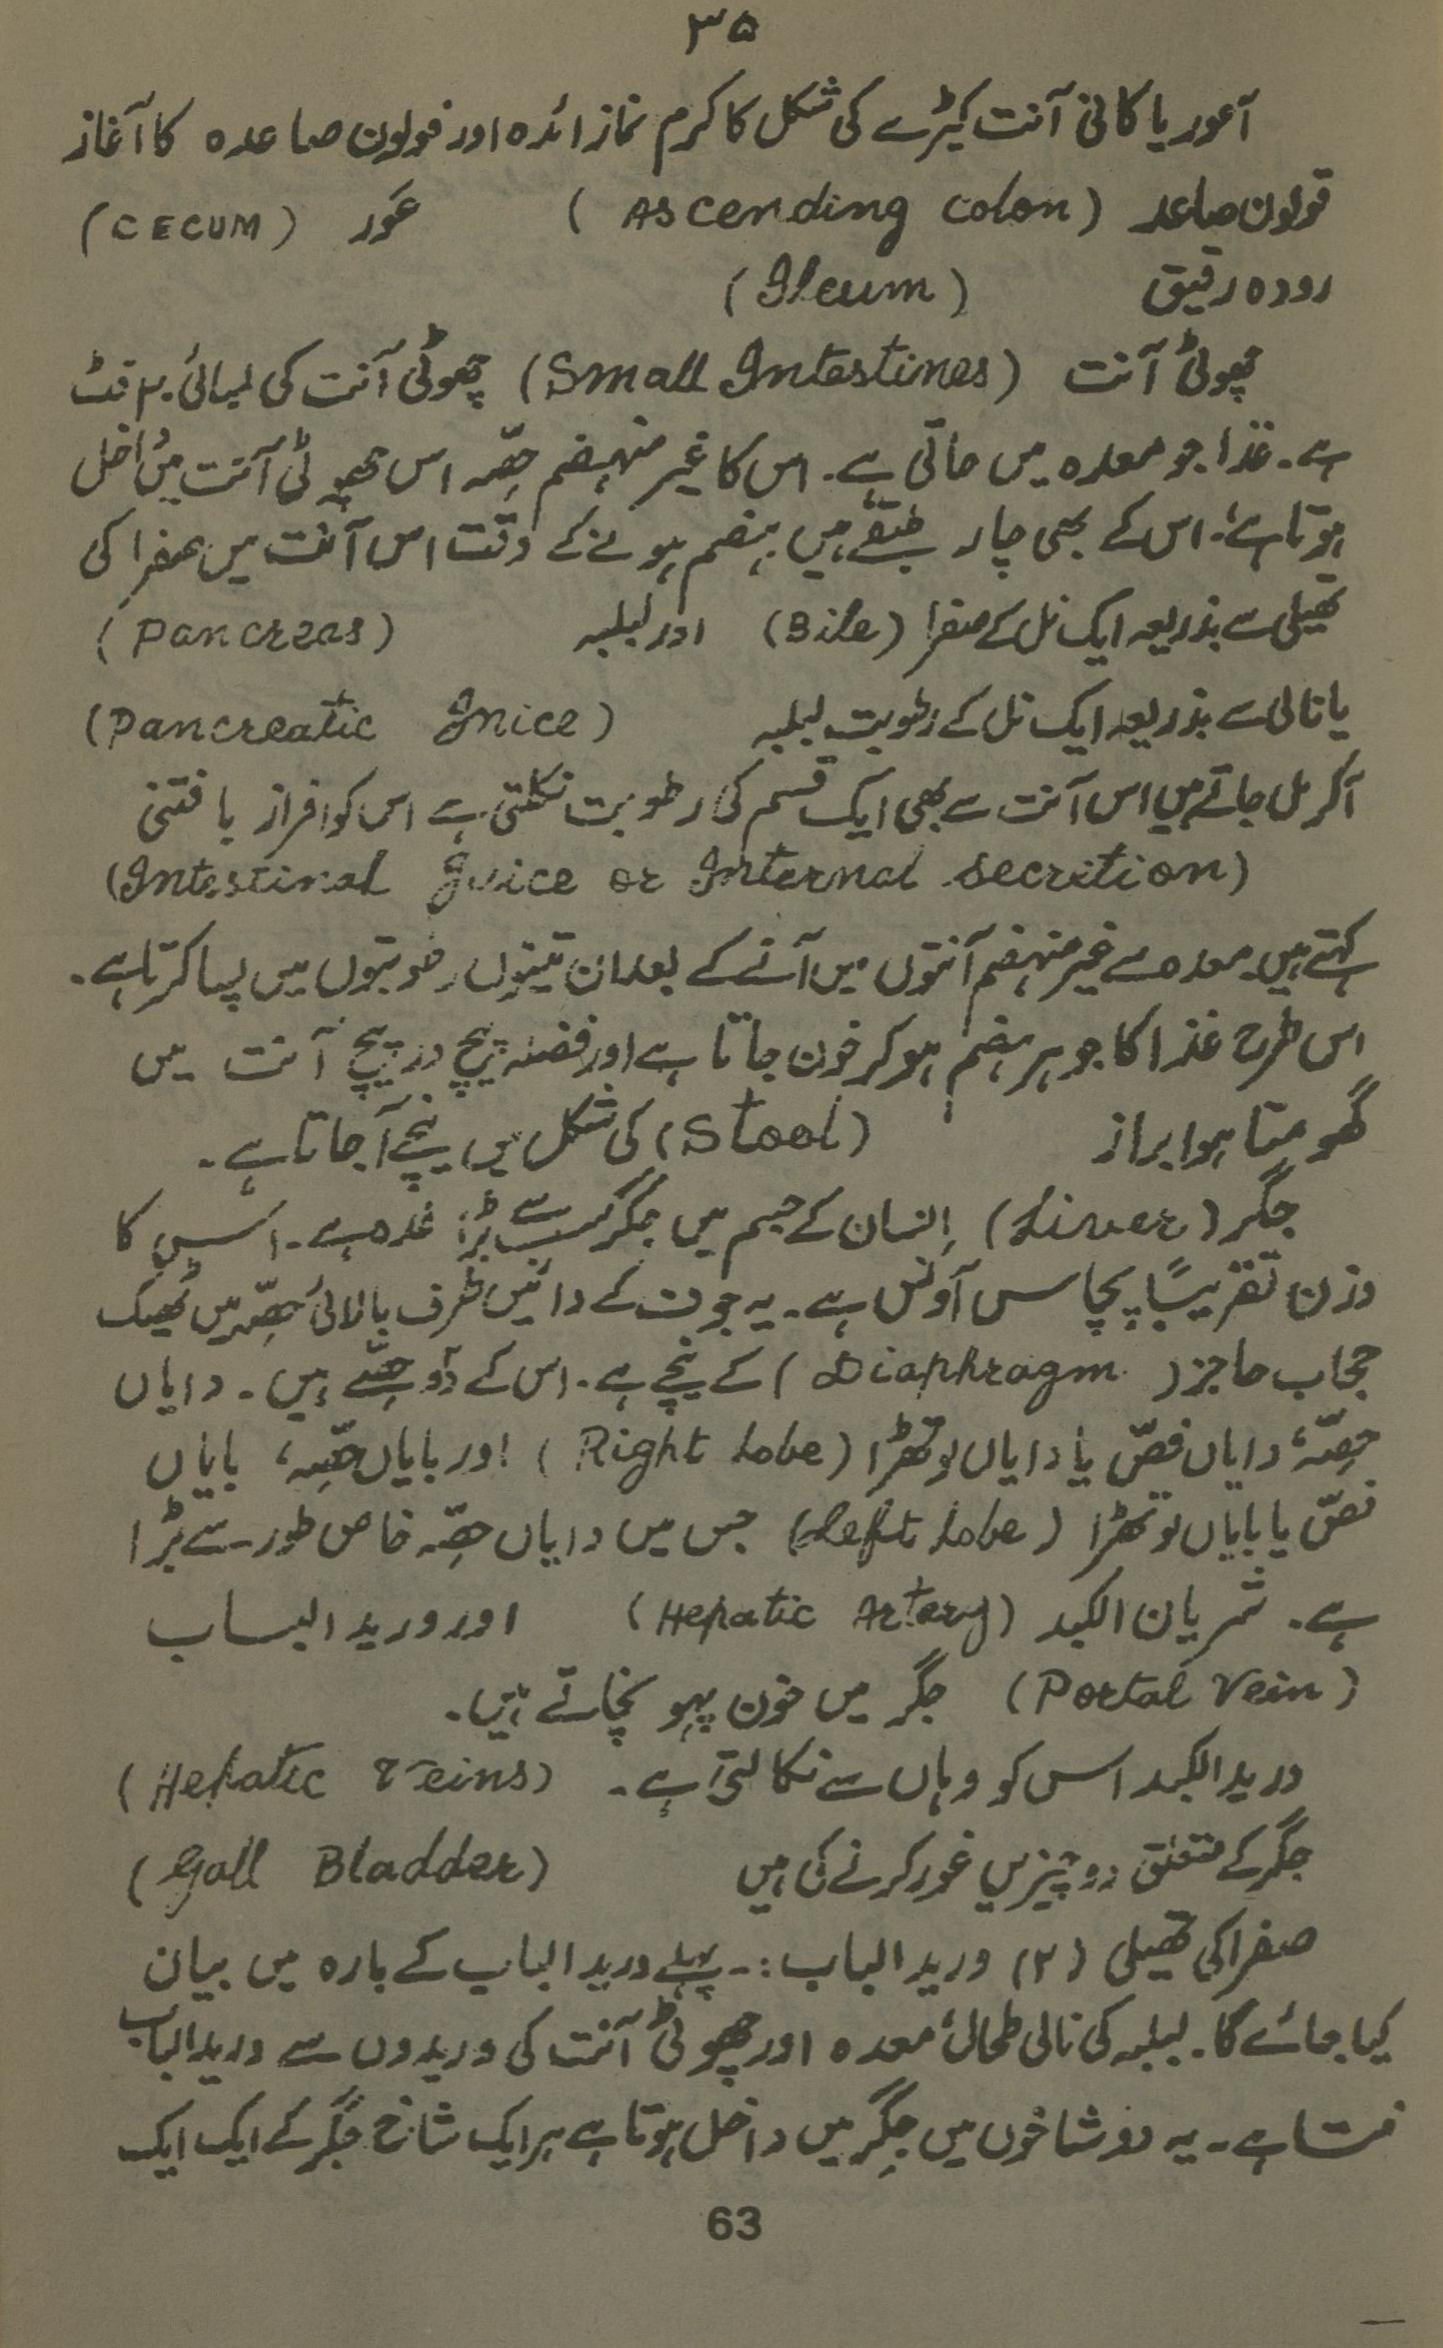 ۳۵
آعور یا کانی آنت کیڑے کی شکل کا کرم نما زائدہ اور قولون صاعدہ کا آغاز
قولون صاعد (Ascending colon) عَور (CECUM)
رودہ رقیق (Ileum)
چھوٹی آنت (Small Intestines) چھوٹی آنت کی لمبائی ۲۰ فٹ
ہے۔ غذا جو معدہ میں جاتی ہے۔ اس کا غیر منہضم حصّہ اس چھوٹی آنت میں داخل
ہوتا ہے۔ اس کے بھی چار طبقے ہیں ہضم ہونے کے وقت اس آنت میں صفرا کی
تھیلی سے بذریعہ ایک نل کے صفرا (Bile) اور لبلبہ (Pancreas)
یا نالی سے بذریعہ ایک نل کے رطوبت لبلبہ (Pancreatic Jnice)
آکر مل جاتے ہیں اس آنت سے بھی ایک قسم کی رطوبت نکلتی ہے اس کو افراز یا فتنی
(Intestinal Juice or Internal secretion)
کہتے ہیں۔ معدہ سے غیر منہضم آنتوں میں آنے کے بعد ان تینوں رطوبتوں میں پسا کرتا ہے۔
اس طرح غذا کا جوہر ہضم ہو کر خون جاتا ہے اور فضلہ پیچ در پیچ آنت میں
گھومتا ہوا براز (Stool) کی شکل میں نیچے آجاتا ہے۔
جگر (Liver) اِنسان کے جسم میں جگر سب سے بڑا غدہ ہے۔ اس کا
وزن تقریباً پچاس آونس ہے۔ یہ جوف کے دائیں طرف بالائی حصّہ میں ٹھیک
حجاب حاجز (Diaphragm) کے نیچے ہے۔ اس کے دو حصّے ہیں۔ دایاں
حصّہ، دایاں فصّ یا دایاں لوتھڑا (Right Lobe) اور بایاں حصّہ، بایاں
فصّ یا بایاں لوتھڑا (Left Lobe) جس میں دایاں حصّہ خاص طور سے بڑا
ہے۔ شریان الکبد (Hepatic Artery) اور ورید الباب
(Portal Vein) جگر میں خون پہونچاتے ہیں۔
ورید الکبد اس کو وہاں سے نکالتی ہے۔ (Hepatic Veins)
جگر کے متعلق دو چیزیں غور کرنے کی ہیں (Gall Bladder)
صفرا کی تھیلی (۲) ورید الباب :۔ پہلے ورید الباب کے بارہ میں بیان
کیا جائے گا۔ لبلبہ کی نالی طحال معدہ اور چھوٹی آنت کی وریدوں سے ورید الباب
بنتا ہے۔ یہ دو شاخوں میں جگر میں داخل ہوتا ہے ہر ایک شاخ جگر کے ایک ایک
63